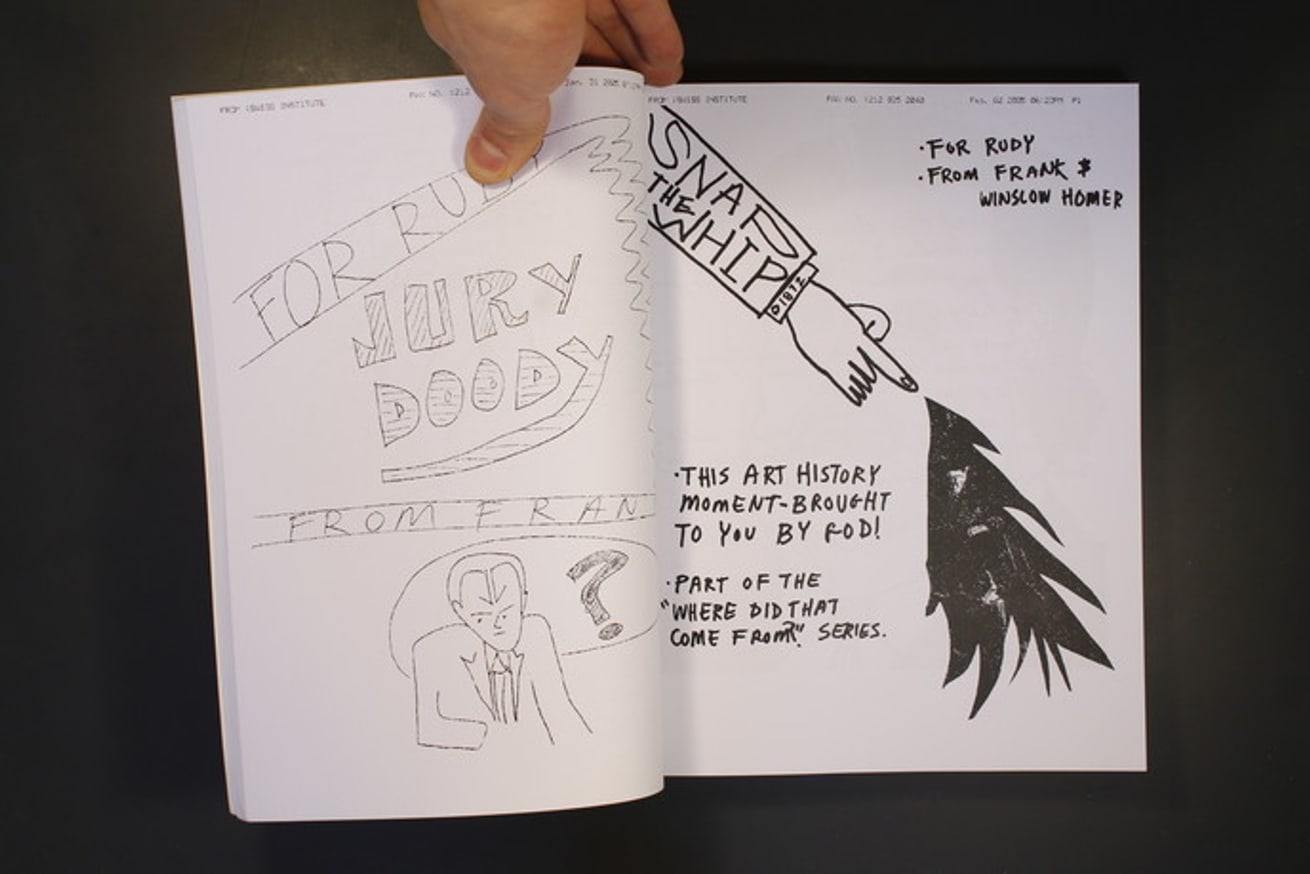 FROM :SWISS INSTITUTE
FAX NO. :212
Jan. 31 2005
FOR RUDY
JURY
DOODY
FROM FRAN
?
FROM :SWISS INSTITUTE FAX NO. :212 925 2040 Feb. 02 2005 06:23PM P1
SNAP
THE
WHIP
©1872
·FOR RUDY
·FROM FRANK $
WINSLOW HOMER
·THIS ART HISTORY
MOMENT-BROUGHT
TO YOU BY FOD!
·PART OF THE
"WHERE DID THAT
COME FROM?" SERIES.